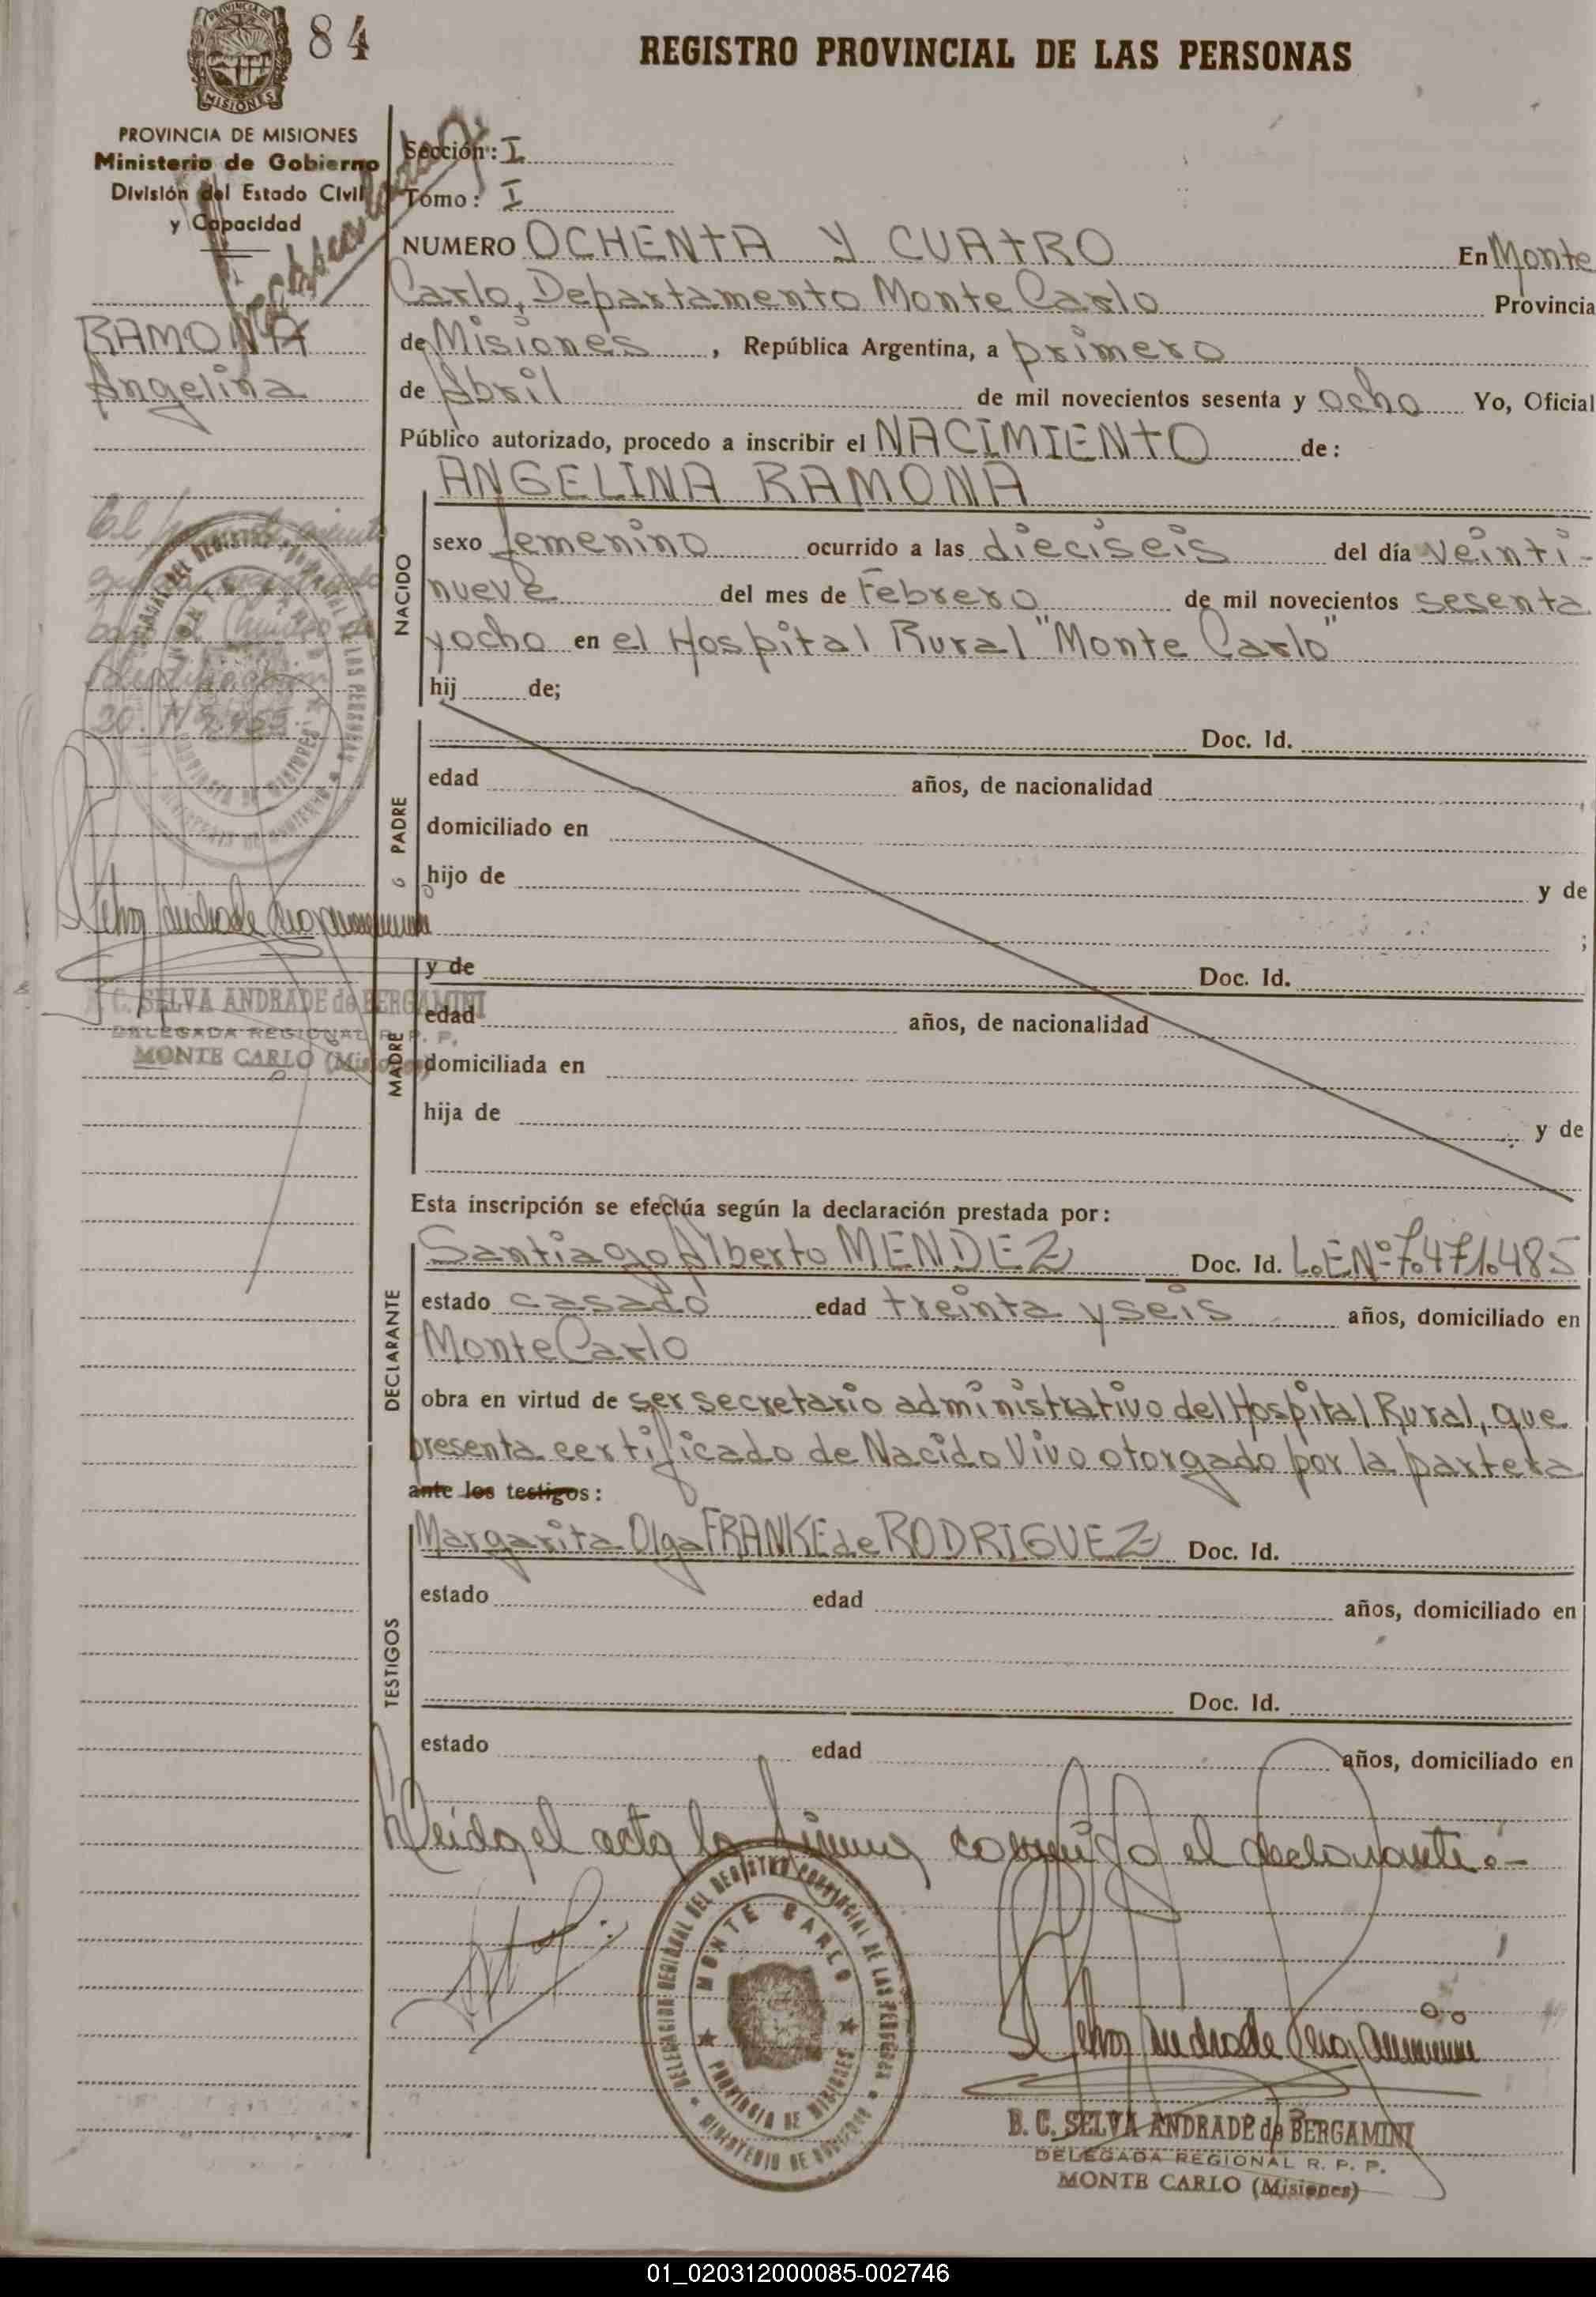 84
REGISTRO PROVINCIAL DE LAS PERSONAS
PROVINCIA DE MISIONES
Ministerio de Gobierno
División del Estado Civil
y Capacidad
RAMONA
Angelina
C. SELVA ANDRADE de BERGAMINI
DELEGADA REGIONAL R. P. P.
MONTE CARLO (Misiones)
Sección: I
Tomo: I
NUMERO OCHENTA Y CUATRO En Monte
Carlo, Departamento Monte Carlo Provincia
de Misiones, República Argentina, a primero
de Abril de mil novecientos sesenta y ocho Yo, Oficial
Público autorizado, procedo a inscribir el NACIMIENTO de:
ANGELINA RAMONA
NACIDO
sexo femenino ocurrido a las dieciseis del día veinti-
nueve del mes de Febrero de mil novecientos sesenta
y ocho en el Hospital Rural "Monte Carlo"
hij de;
PADRE
Doc. Id.
edad años, de nacionalidad
domiciliado en
hijo de y de
;
MADRE
y de Doc. Id.
edad años, de nacionalidad
domiciliada en
hija de y de
Esta inscripción se efectúa según la declaración prestada por:
DECLARANTE
Santiago Alberto MENDEZ Doc. Id. L.E.Nº 7.471.485
estado casado edad treinta y seis años, domiciliado en
Monte Carlo
obra en virtud de ser secretario administrativo del Hospital Rural, que
presenta certificado de Nacido Vivo otorgado por la partera
ante los testigos:
TESTIGOS
Margarita Olga FRANKE de RODRIGUEZ Doc. Id.
estado edad años, domiciliado en
Doc. Id.
estado edad años, domiciliado en
Leida el acta la firma conmigo el declarante.-
DELEGACION REGIONAL DEL REGISTRO PROVINCIAL DE LAS PERSONAS
MONTE CARLO
PROVINCIA DE MISIONES
MINISTERIO DE GOBIERNO
B. C. SELVA ANDRADE de BERGAMINI
DELEGADA REGIONAL R. P. P.
MONTE CARLO (Misiones)
01_020312000085-002746